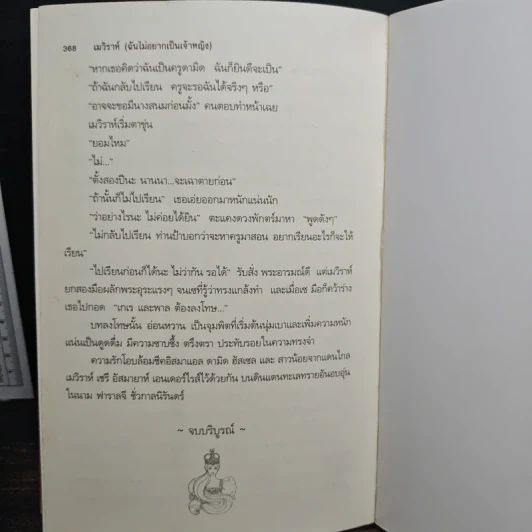 368    เมวิราห์ (ฉันไม่อยากเป็นเจ้าหญิง)
“หากเธอคิดว่าฉันเป็นครูดามิต ฉันก็ยินดีจะเป็น”
“ถ้าฉันกลับไปเรียน ครูจะรอฉันได้จริงๆ หรือ”
“อาจจะขอมีนางสนมก่อนมั้ง” คนตอบทำหน้าเฉย
เมวิราห์เริ่มตาขุ่น
“ยอมไหม”
“ไม่...”
“ตั้งสองปีนะ นานนา...จะเฉาตายก่อน”
“ถ้านั้นก็ไม่ไปเรียน” เธอเอ่ยออกมาหนักแน่นนัก
“ว่าอย่างไรนะ ไม่ค่อยได้ยิน” ตะแคงดวงพักตร์มาหา “พูดดังๆ”
“ไม่กลับไปเรียน ท่านป้าบอกว่าจะหาครูมาสอน อยากเรียนอะไรก็จะให้
เรียน”
“ไปเรียนก่อนก็ได้นะ ไม่ว่ากัน รอได้” รับสั่ง พระอารมณ์ดี แต่เมวิราห์
ยกสองมือผลักพระอุระแรงๆ จนเซที่รู้ว่าทรงแกล้งทำ และเมื่อเซ มือก็คว้าร่าง
เธอไปกอด “เกเร และพาล ต้องลงโทษ...”
บทลงโทษนั้น อ่อนหวาน เป็นจุมพิตที่เริ่มต้นนุ่มเบาและเพิ่มความหนัก
แน่นเป็นดูดดื่ม มีความซาบซึ้ง ตรึงตรา ประทับรอยในความทรงจำ
ความรักโอบล้อมชีคอิสมาแอล ดามิต ฮัสเซล และ สาวน้อยจากแดนไกล
เมวิราห์ เชรี อัสมายาห์ เอนเดอร์ไรส์ไว้ด้วยกัน บนดินแดนทะเลทรายอันอบอุ่น
ในนาม ฟาราลจี ชั่วกาลนิรันดร์
~ จบบริบูรณ์ ~